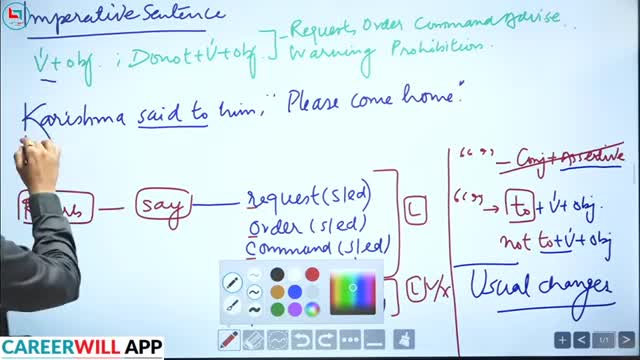 Imperative Sentence
V¹+obj. ; Donot+V¹+obj. Requests Order Command Advise
Warning Prohibition.
Karishma said to him, "Please come home".
say request (s/ed)
Order (s/ed)
Command (s/ed)
L
L M/x
" " – Conj + Assertive
" " → to + V¹ + obj.
not to + V¹ + obj
Usual changes
1/1
CAREERWILL APP